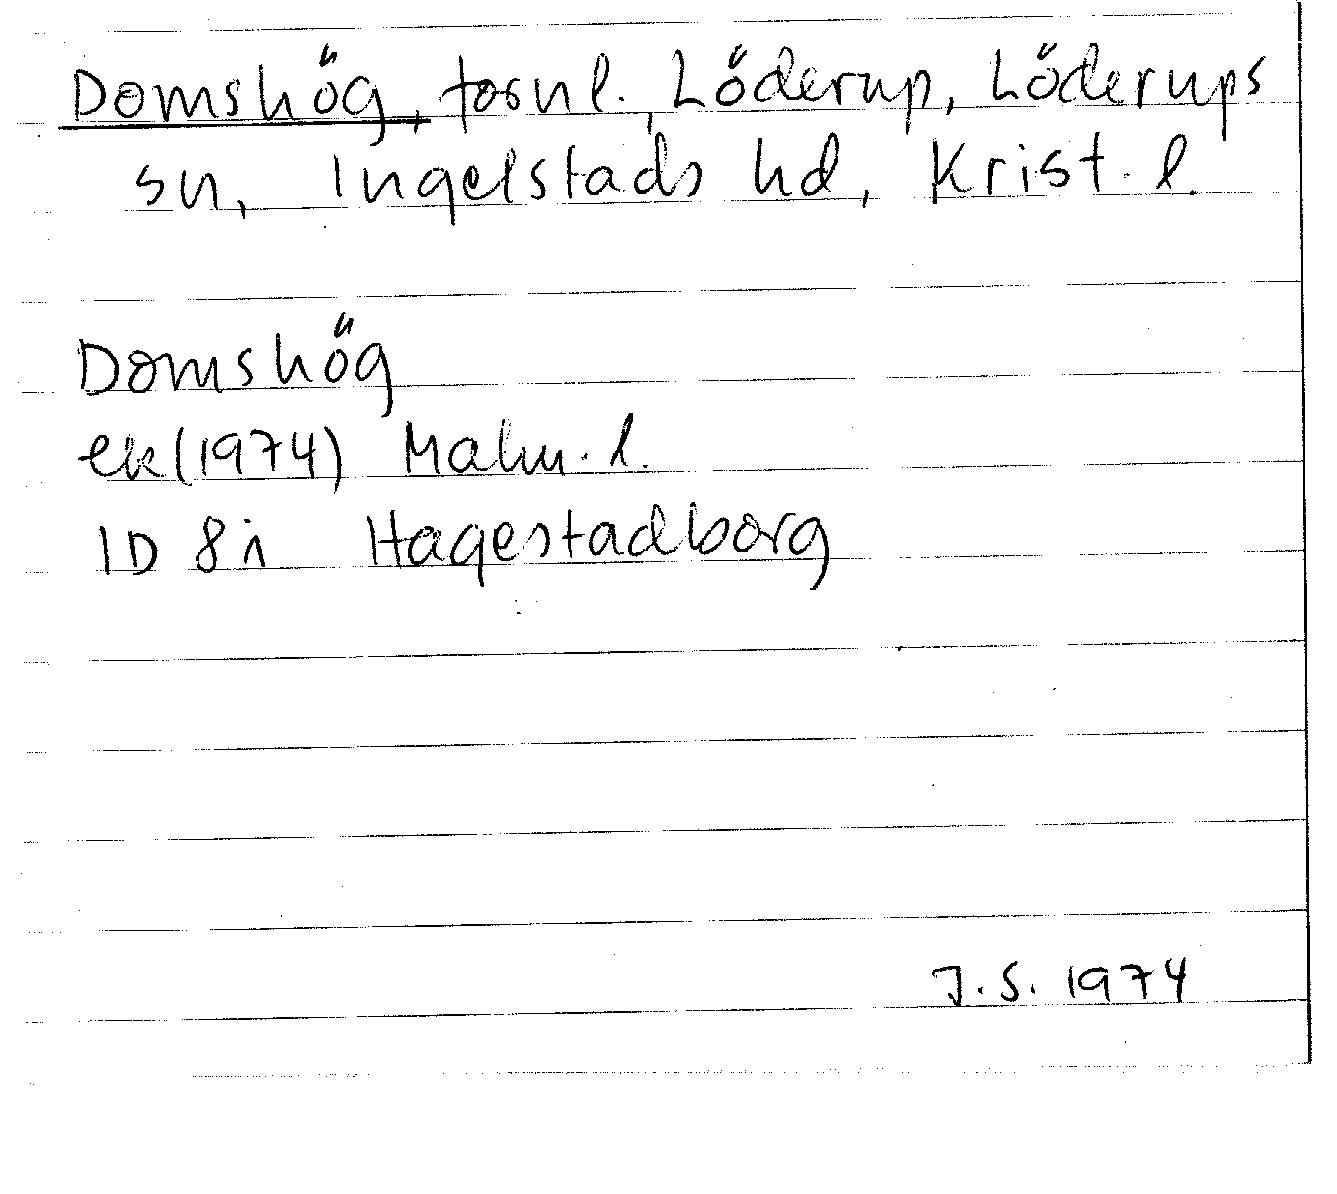 Domshög, fornl. Löderup, Löderups
sn, Ingelstads hd, Krist. l.
Domshög
ek (1974) Malm. l.
1D 8i Hagestadborg
J.S. 1974